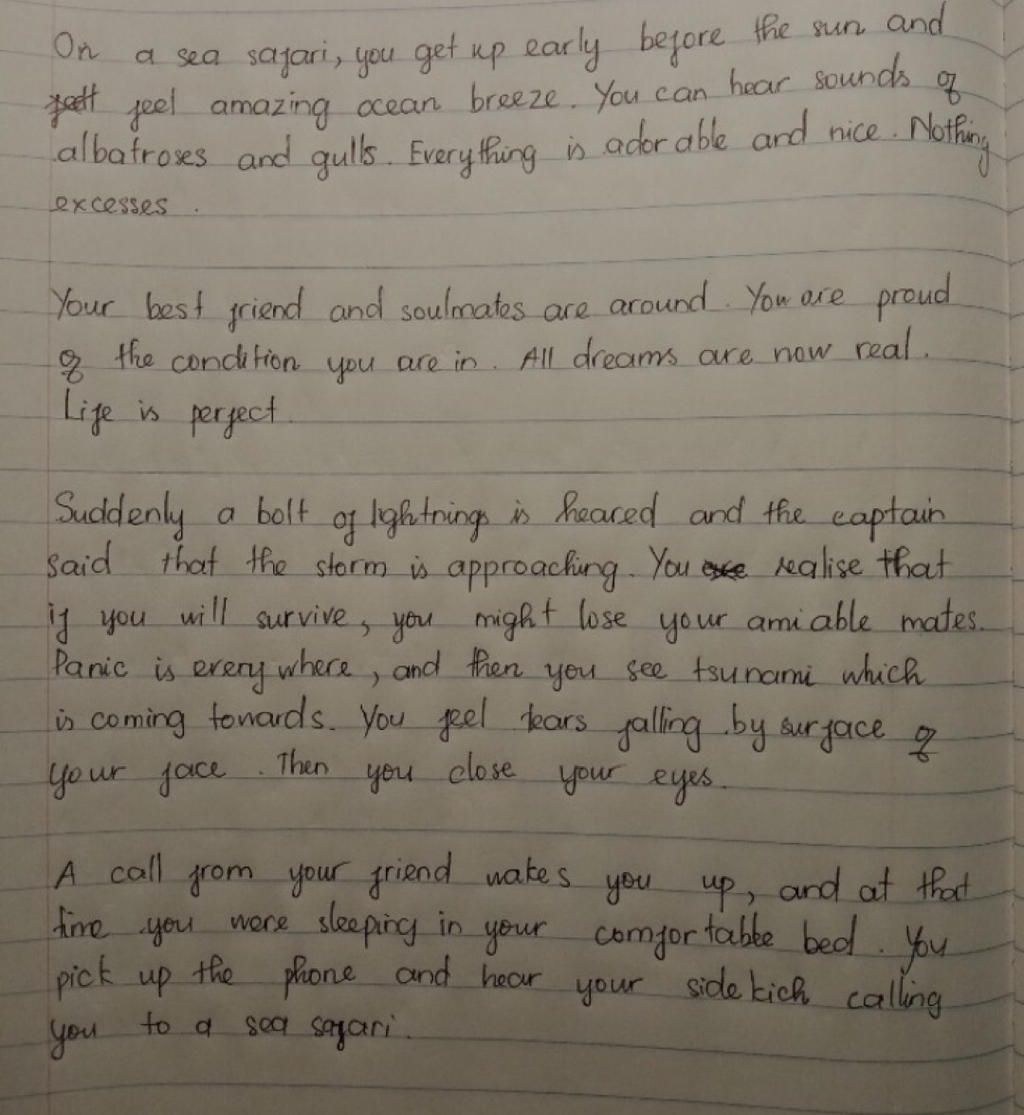 On a sea safari, you get up early before the sun and
feel amazing ocean breeze. You can hear sounds of
albatroses and gulls. Everything is adorable and nice. Nothing
excesses.
Your best friend and soulmates are around. You are proud
of the condition you are in. All dreams are now real.
Life is perfect.
Suddenly a bolt of lightnings is heared and the captain
said that the storm is approaching. You realise that
if you will survive, you might lose your amiable mates.
Panic is everywhere, and then you see tsunami which
is coming towards. You feel tears falling by surface of
your face. Then you close your eyes.
A call from your friend wakes you up, and at that
time you were sleeping in your comfortable bed. You
pick up the phone and hear your sidekich calling
you to a sea safari.